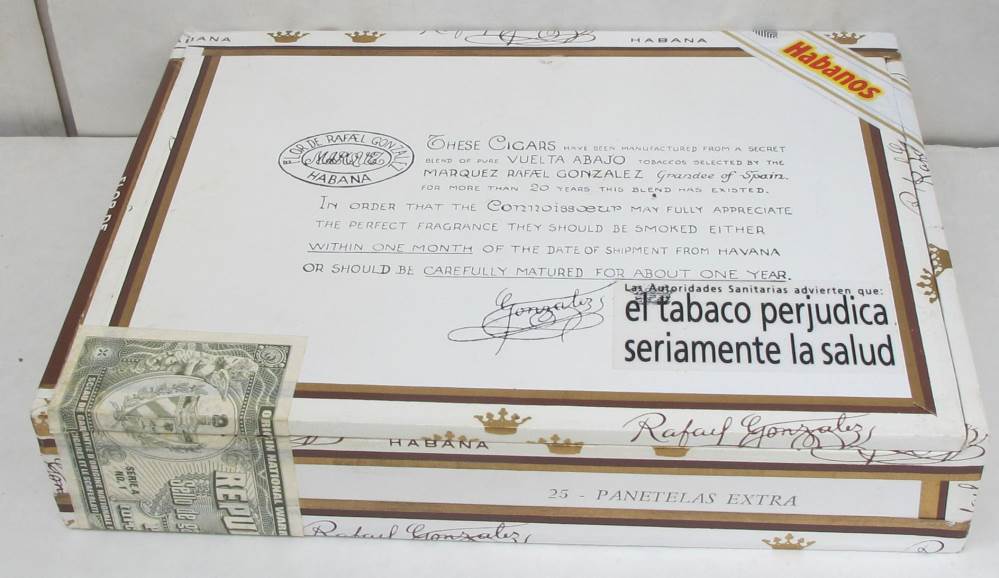 HABANA
Habanos
FLOR DE RAFAEL GONZALEZ
MARQUEZ
HABANA
THESE CIGARS HAVE BEEN MANUFACTURED FROM A SECRET
BLEND OF PURE VUELTA ABAJO TOBACCOS SELECTED BY THE
MARQUEZ RAFAEL GONZALEZ Grandee of Spain.
FOR MORE THAN 20 YEARS THIS BLEND HAS EXISTED.
IN ORDER THAT THE Connoisseur MAY FULLY APPRECIATE
THE PERFECT FRAGRANCE THEY SHOULD BE SMOKED EITHER
WITHIN ONE MONTH OF THE DATE OF SHIPMENT FROM HAVANA
OR SHOULD BE CAREFULLY MATURED FOR ABOUT ONE YEAR.
Gonzalez
Las Autoridades Sanitarias advierten que:
el tabaco perjudica
seriamente la salud
FLOR DE
HABANA
Rafael Gonzalez
25 - PANETELAS EXTRA
Rafael Gonzalez
SERIE A
REPU